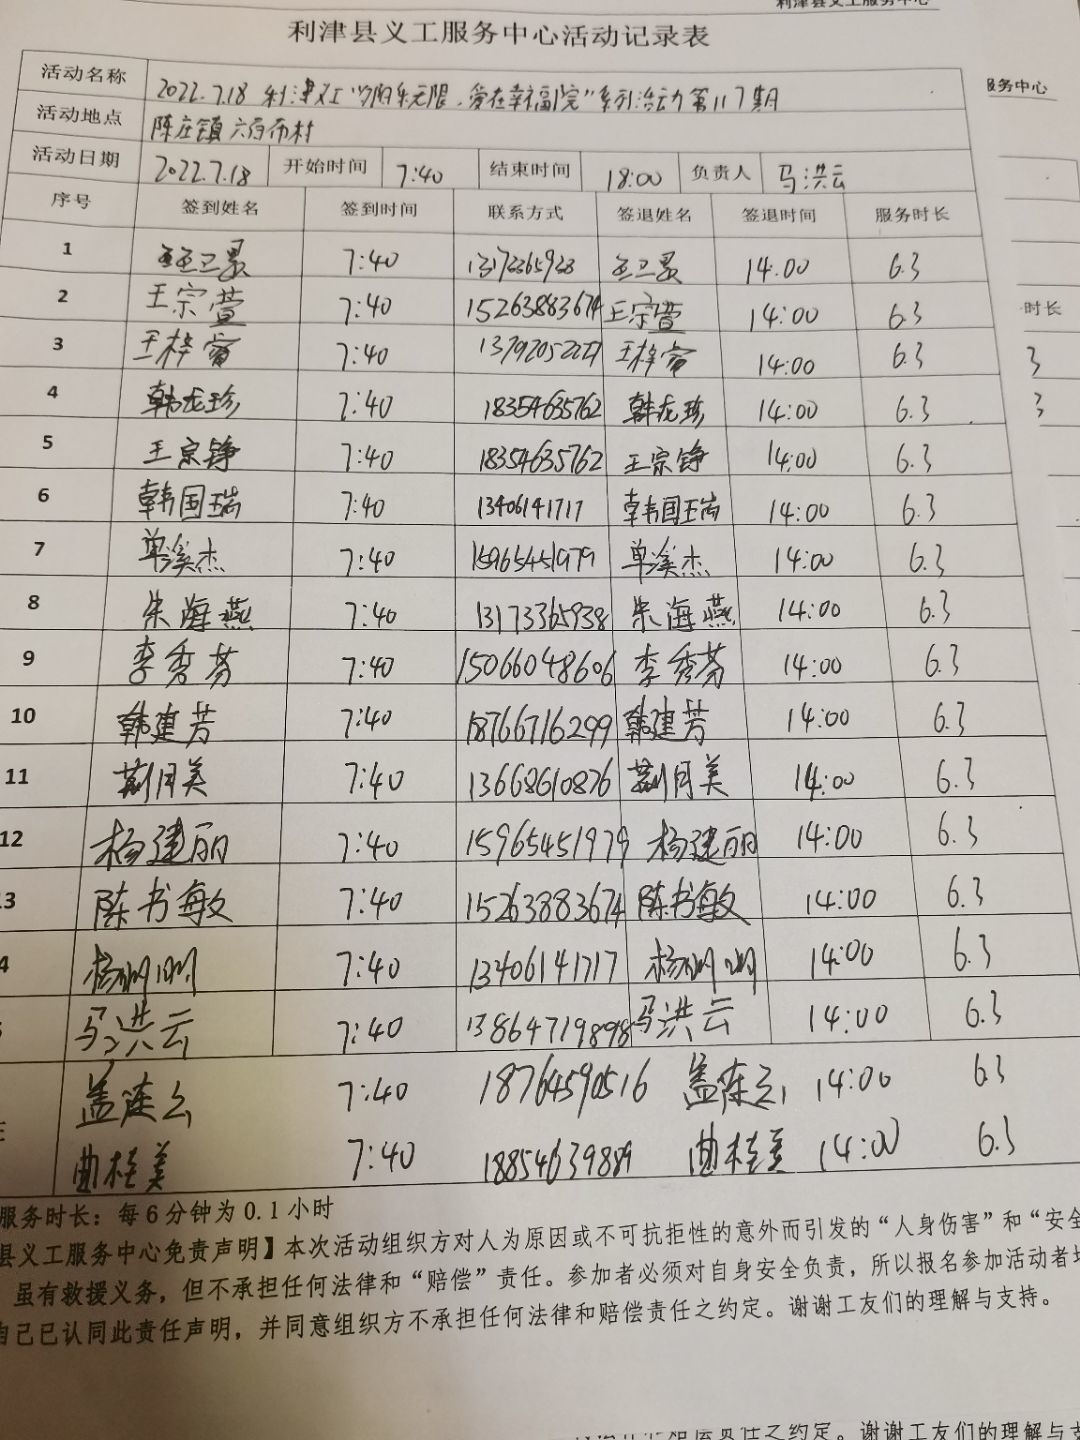 利津县义工服务中心
利津县义工服务中心活动记录表
服务中心
活动名称 2022.7.18 利津义工"夕阳乐无限，爱在幸福院"系列活动第117期
活动地点 陈庄镇六百布村
活动日期 2022.7.18 开始时间 7:40 结束时间 18:00 负责人 马洪云
序号 签到姓名 签到时间 联系方式 签退姓名 签退时间 服务时长
1 7:40 14:00 6.3
2 王宗萱 7:40 15263883674 王宗萱 14:00 6.3
时长
3 王梓睿 7:40 王梓睿 14:00 6.3
3
4 韩龙珍 7:40 18354635762 韩龙珍 14:00 6.3
3
5 王宗铮 7:40 18354635762 王宗铮 14:00 6.3
6 韩国瑞 7:40 13406141717 韩国瑞 14:00 6.3
7 单溪杰 7:40 15965451979 单溪杰 14:00 6.3
8 朱海燕 7:40 13173365938 朱海燕 14:00 6.3
9 李秀芬 7:40 15066048606 李秀芬 14:00 6.3
10 韩建芳 7:40 18766716299 韩建芳 14:00 6.3
11 荆月美 7:40 13668610876 荆月美 14:00 6.3
12 杨建丽 7:40 15965451979 杨建丽 14:00 6.3
3 陈书敏 7:40 15263883674 陈书敏 14:00 6.3
4 7:40 13406141717 14:00 6.3
马洪云 7:40 13864719898 马洪云 14:00 6.3
盖连云 7:40 18764590516 盖连云 14:00 6.3
曲桂美 7:40 18854639889 曲桂美 14:00 6.3
服务时长：每6分钟为0.1小时
县义工服务中心免责声明】本次活动组织方对人为原因或不可抗拒性的意外而引发的“人身伤害”和“安全
虽有救援义务，但不承担任何法律和“赔偿”责任。参加者必须对自身安全负责，所以报名参加活动者均
自己已认同此责任声明，并同意组织方不承担任何法律和赔偿责任之约定。谢谢工友们的理解与支持。
赔偿责任之约定。谢谢工友们的理解与支